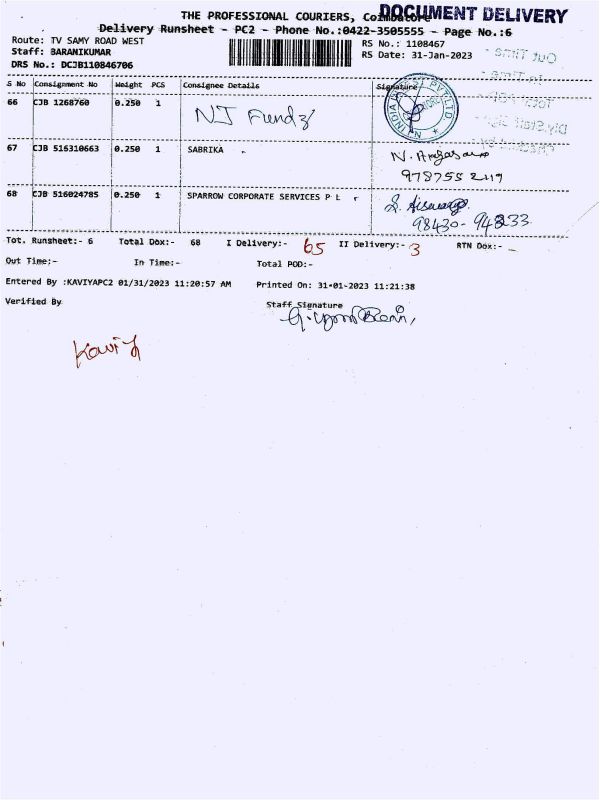 DOCUMENT DELIVERY
THE PROFESSIONAL COURIERS, Coimbatore
Delivery Runsheet - PC2 - Phone No.:0422-3505555 - Page No.:6
Route: TV SAMY ROAD WEST
RS No.: 1108467
Staff: BARANIKUMAR
RS Date: 31-Jan-2023
DRS No.: DCJB110846706
Out Time
In Time
Total POD
Dly.Staff Sig
Checked by
S No Consignment No Weight PCS Consignee Details Signature
66 CJB 1268760 0.250 1 NJ Fundz
67 CJB 516310663 0.250 1 SABRIKA
978755 2119
68 CJB 516024785 0.250 1 SPARROW CORPORATE SERVICES P L
98430-94833
Tot. Runsheet:- 6 Total Dox:- 68 I Delivery:- 65 II Delivery:- 3 RTN Dox:- -
Out Time:- In Time:- Total POD:-
Entered By :KAVIYAPC2 01/31/2023 11:20:57 AM Printed On: 31-01-2023 11:21:38
Verified By Staff Signature